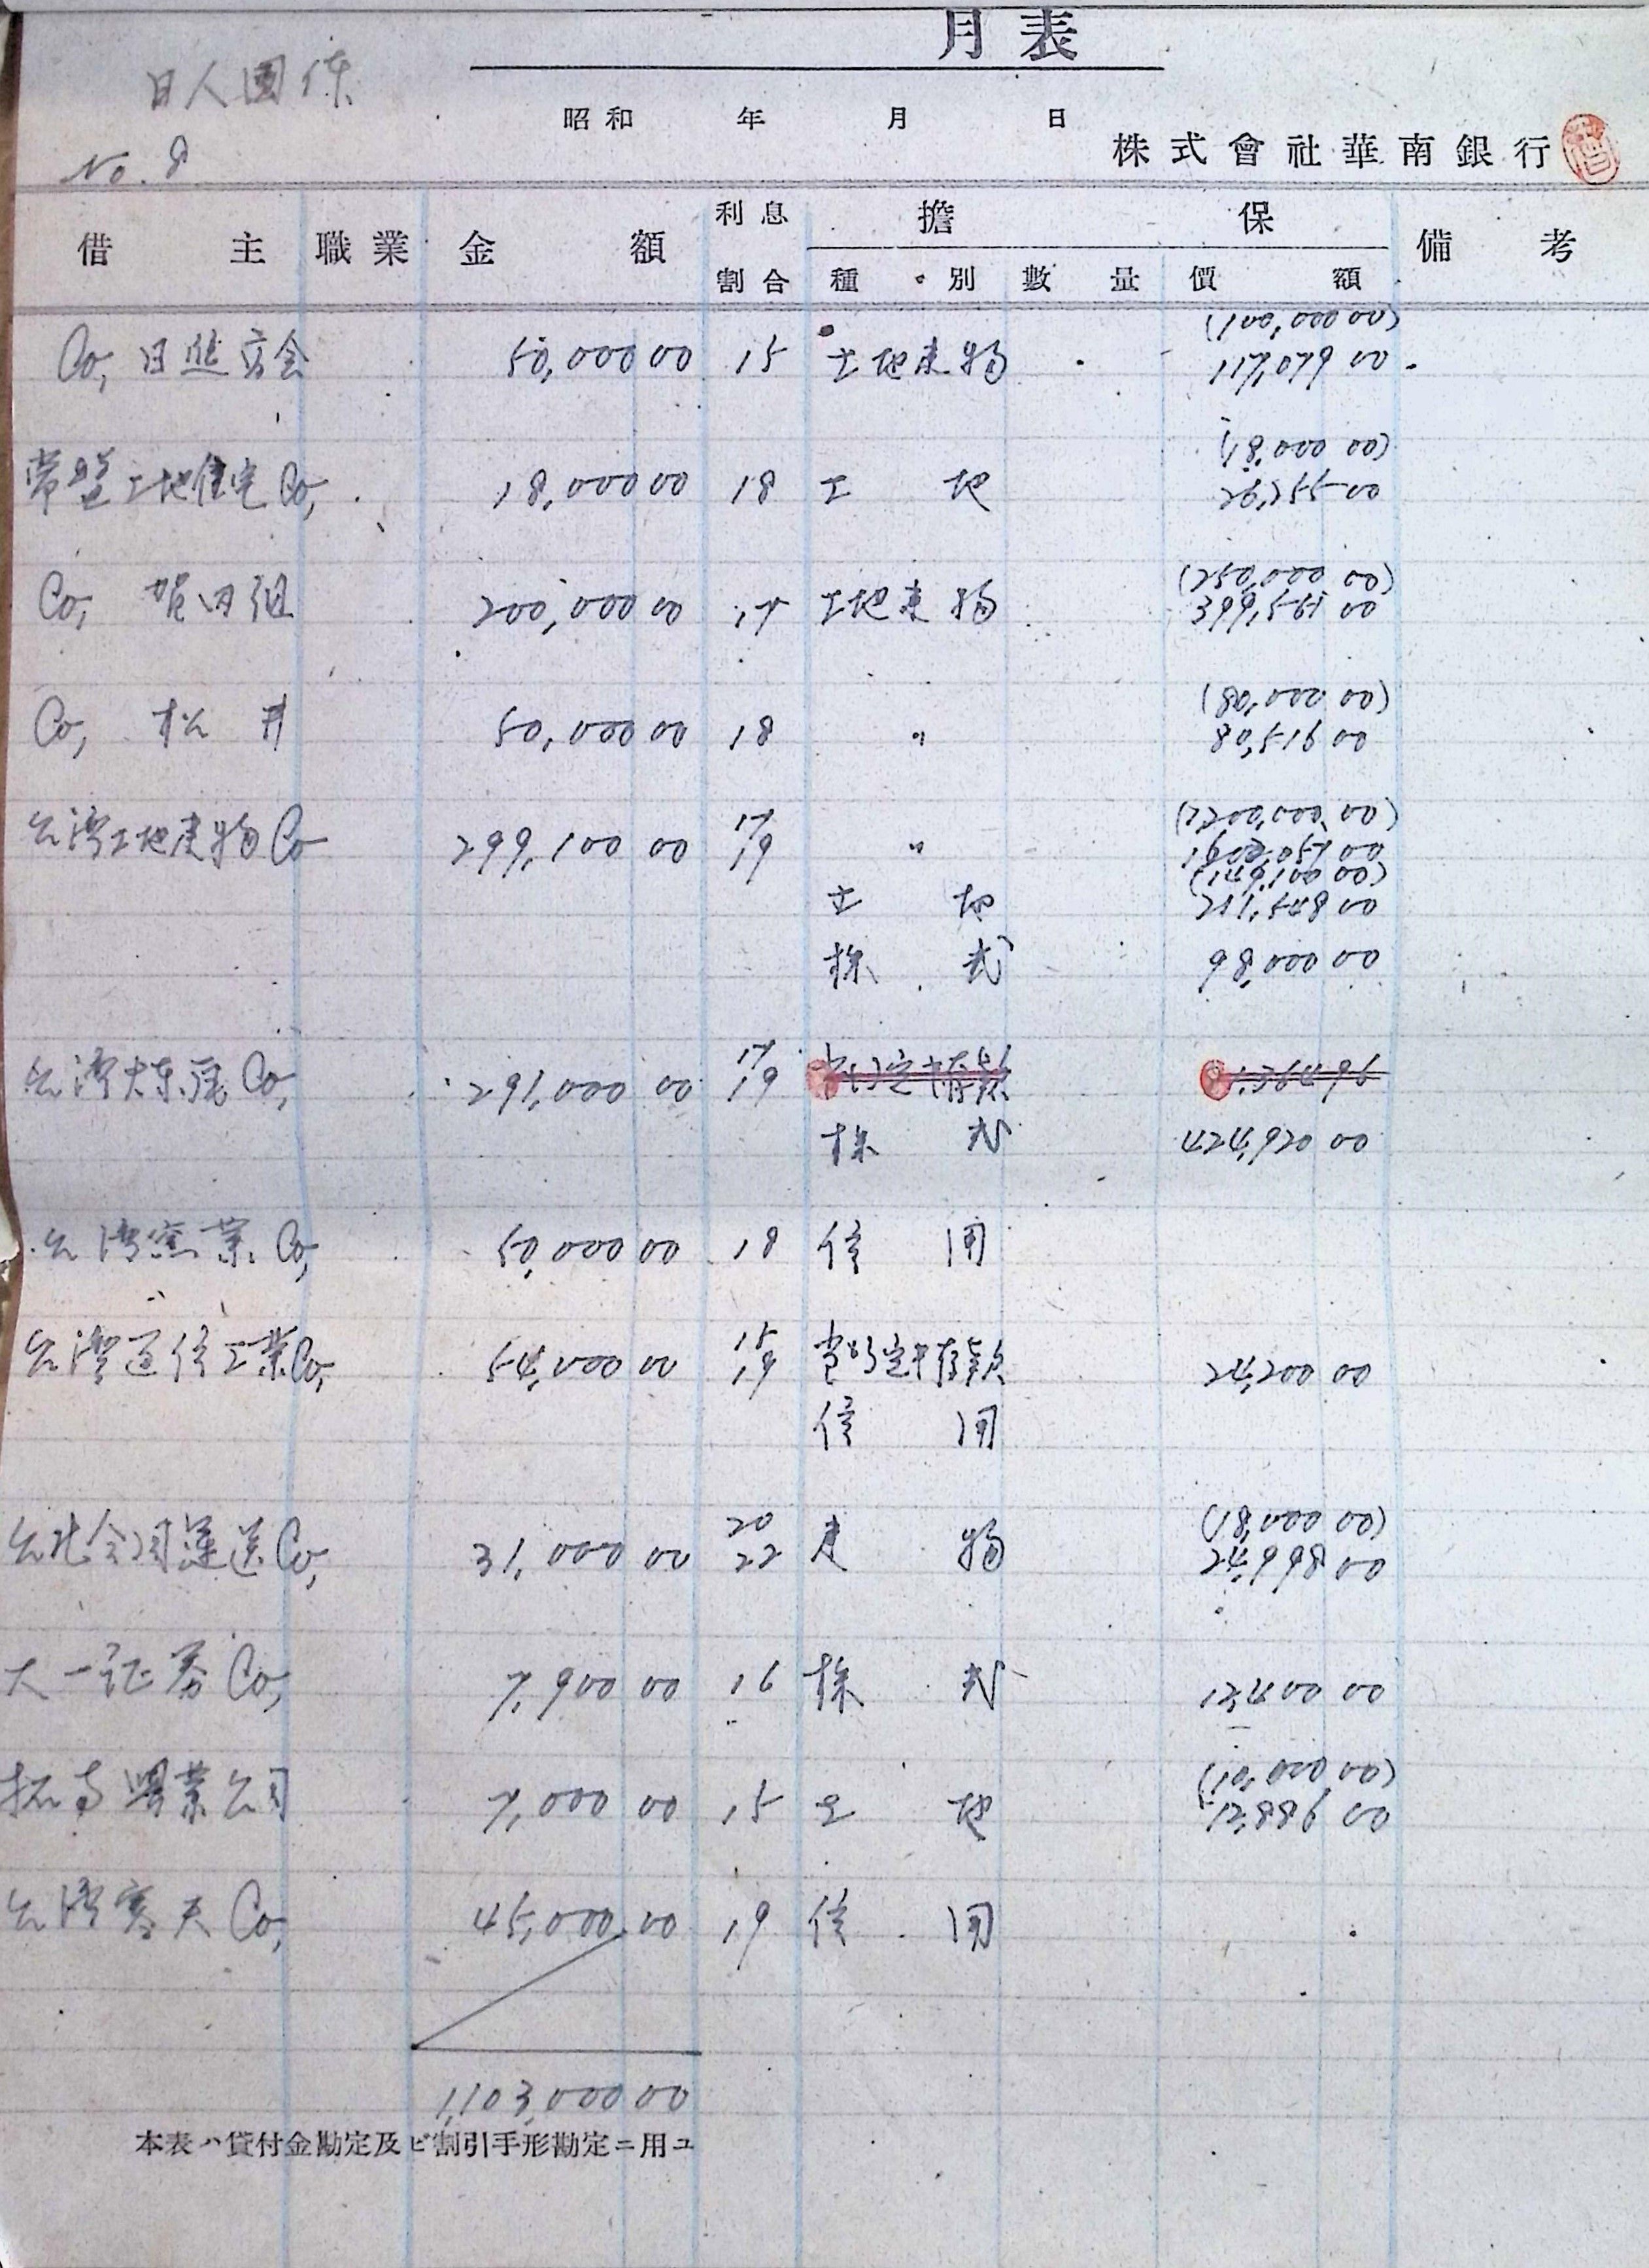 月表
日人團体
昭和 年 月 日
株式會社華南銀行
No. 8
借主 職業 金額 利息割合 擔保 種別 數量 價額 備考
(100,000 00)
Co, 日進商会 50,000 00 15 土地建物 117,079 00
(18,000 00)
常盤土地住宅Co, 18,000 00 18 土地 26,255 00
(250,000 00)
Co, 組 200,000 00 17 土地建物 399,561 00
(80,000 00)
Co, 松井 50,000 00 18 〃 80,516 00
台湾土地建物Co 299,100 00 17 19 〃 (1,200,000 00)
(149,100 00)
土地 211,548 00
株式 98,000 00
台湾煉瓦Co, 291,000 00 17 19
株式 424,920 00
台湾窯業Co, 50,000 00 18 信用
台湾通信工業Co, 54,000 00 15 19 24,200 00
信用
(18,000 00)
台北合同運送Co, 31,000 00 20 22 建物 24,998 00
大一証券Co, 7,900 00 16 株式 12,400 00
(10,000 00)
拓南興業公司 7,000 00 15 土地 12,886 00
台湾寒天Co, 45,000 00 19 信用
1,103,000 00
本表ハ貸付金勘定及ビ割引手形勘定ニ用ユ